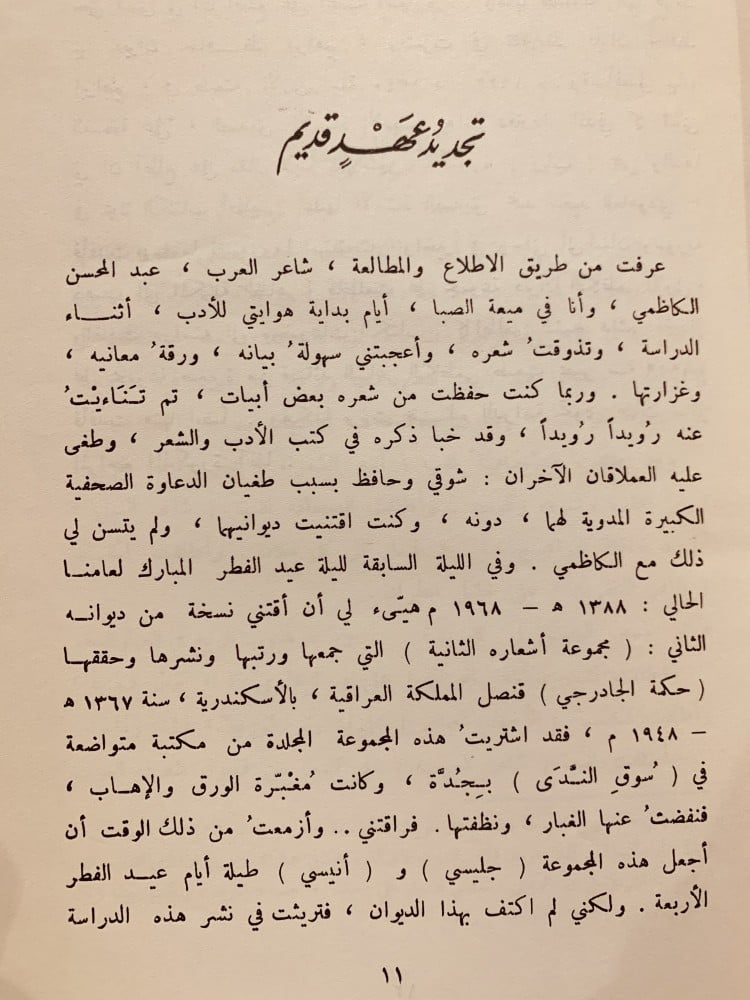 تجديدُ عهْدٍ قديم
عرفت من طريق الاطلاع والمطالعة ، شاعر العرب ، عبد المحسن
الكاظمي ، وأنا في ميعة الصبا ، أيام بداية هوايتي للأدب ، أثنـــاء
الدراسة ، وتذوقتُ شعره ، وأعجبتني سهولةُ بيانه ، ورقةُ معانيه ،
وغزارتها . وربما كنت حفظت من شعره بعض أبيات ، تم تَنَاءيْتُ
عنه رُويداً رُويداً ، وقد خبا ذكره في كتب الأدب والشعر ، وطغى
عليه العملاقان الآخران : شوقي وحافظ بسبب طغيان الدعاوة الصحفية
الكبيرة المدوية لهما ، دونه ، وكنت اقتنيت ديوانيهما ، ولم يتسن لي
ذلك مع الكاظمي . وفي الليلة السابقة لليلة عيد الفطر المبارك لعامنــا
الحالي : ١٣٨٨ ه – ١٩٦٨ م هيّىء لي أن أقتني نسخة من ديوانــه
الثاني : ( مجموعة أشعاره الثانية ) التي جمعها ورتبها ونشرها وحققهــا
( حكمة الجادرجي ) قنصل المملكة العراقية ، بالأسكندرية ، سنة ١٣٦٧ ه
– ١٩٤٨ م ، فقد اشتريتُ هذه المجموعة المجلدة من مكتبة متواضعة
في ( سُوقِ النَّدَى ) بـجُدَّة ، وكانت مُغْبّرة الورق والإهــاب ،
فنفضتُ عنها الغبار ، ونظفتها . فراقتني .. وأزمعتُ من ذلك الوقت أن
أجعل هذه المجموعة ( جليسي ) و ( أنيسي ) طيلة أيام عيــد الفطر
الأربعة . ولكنني لم اكتف بهذا الديوان ، فتريثت في نشر هذه الدراسة
١١